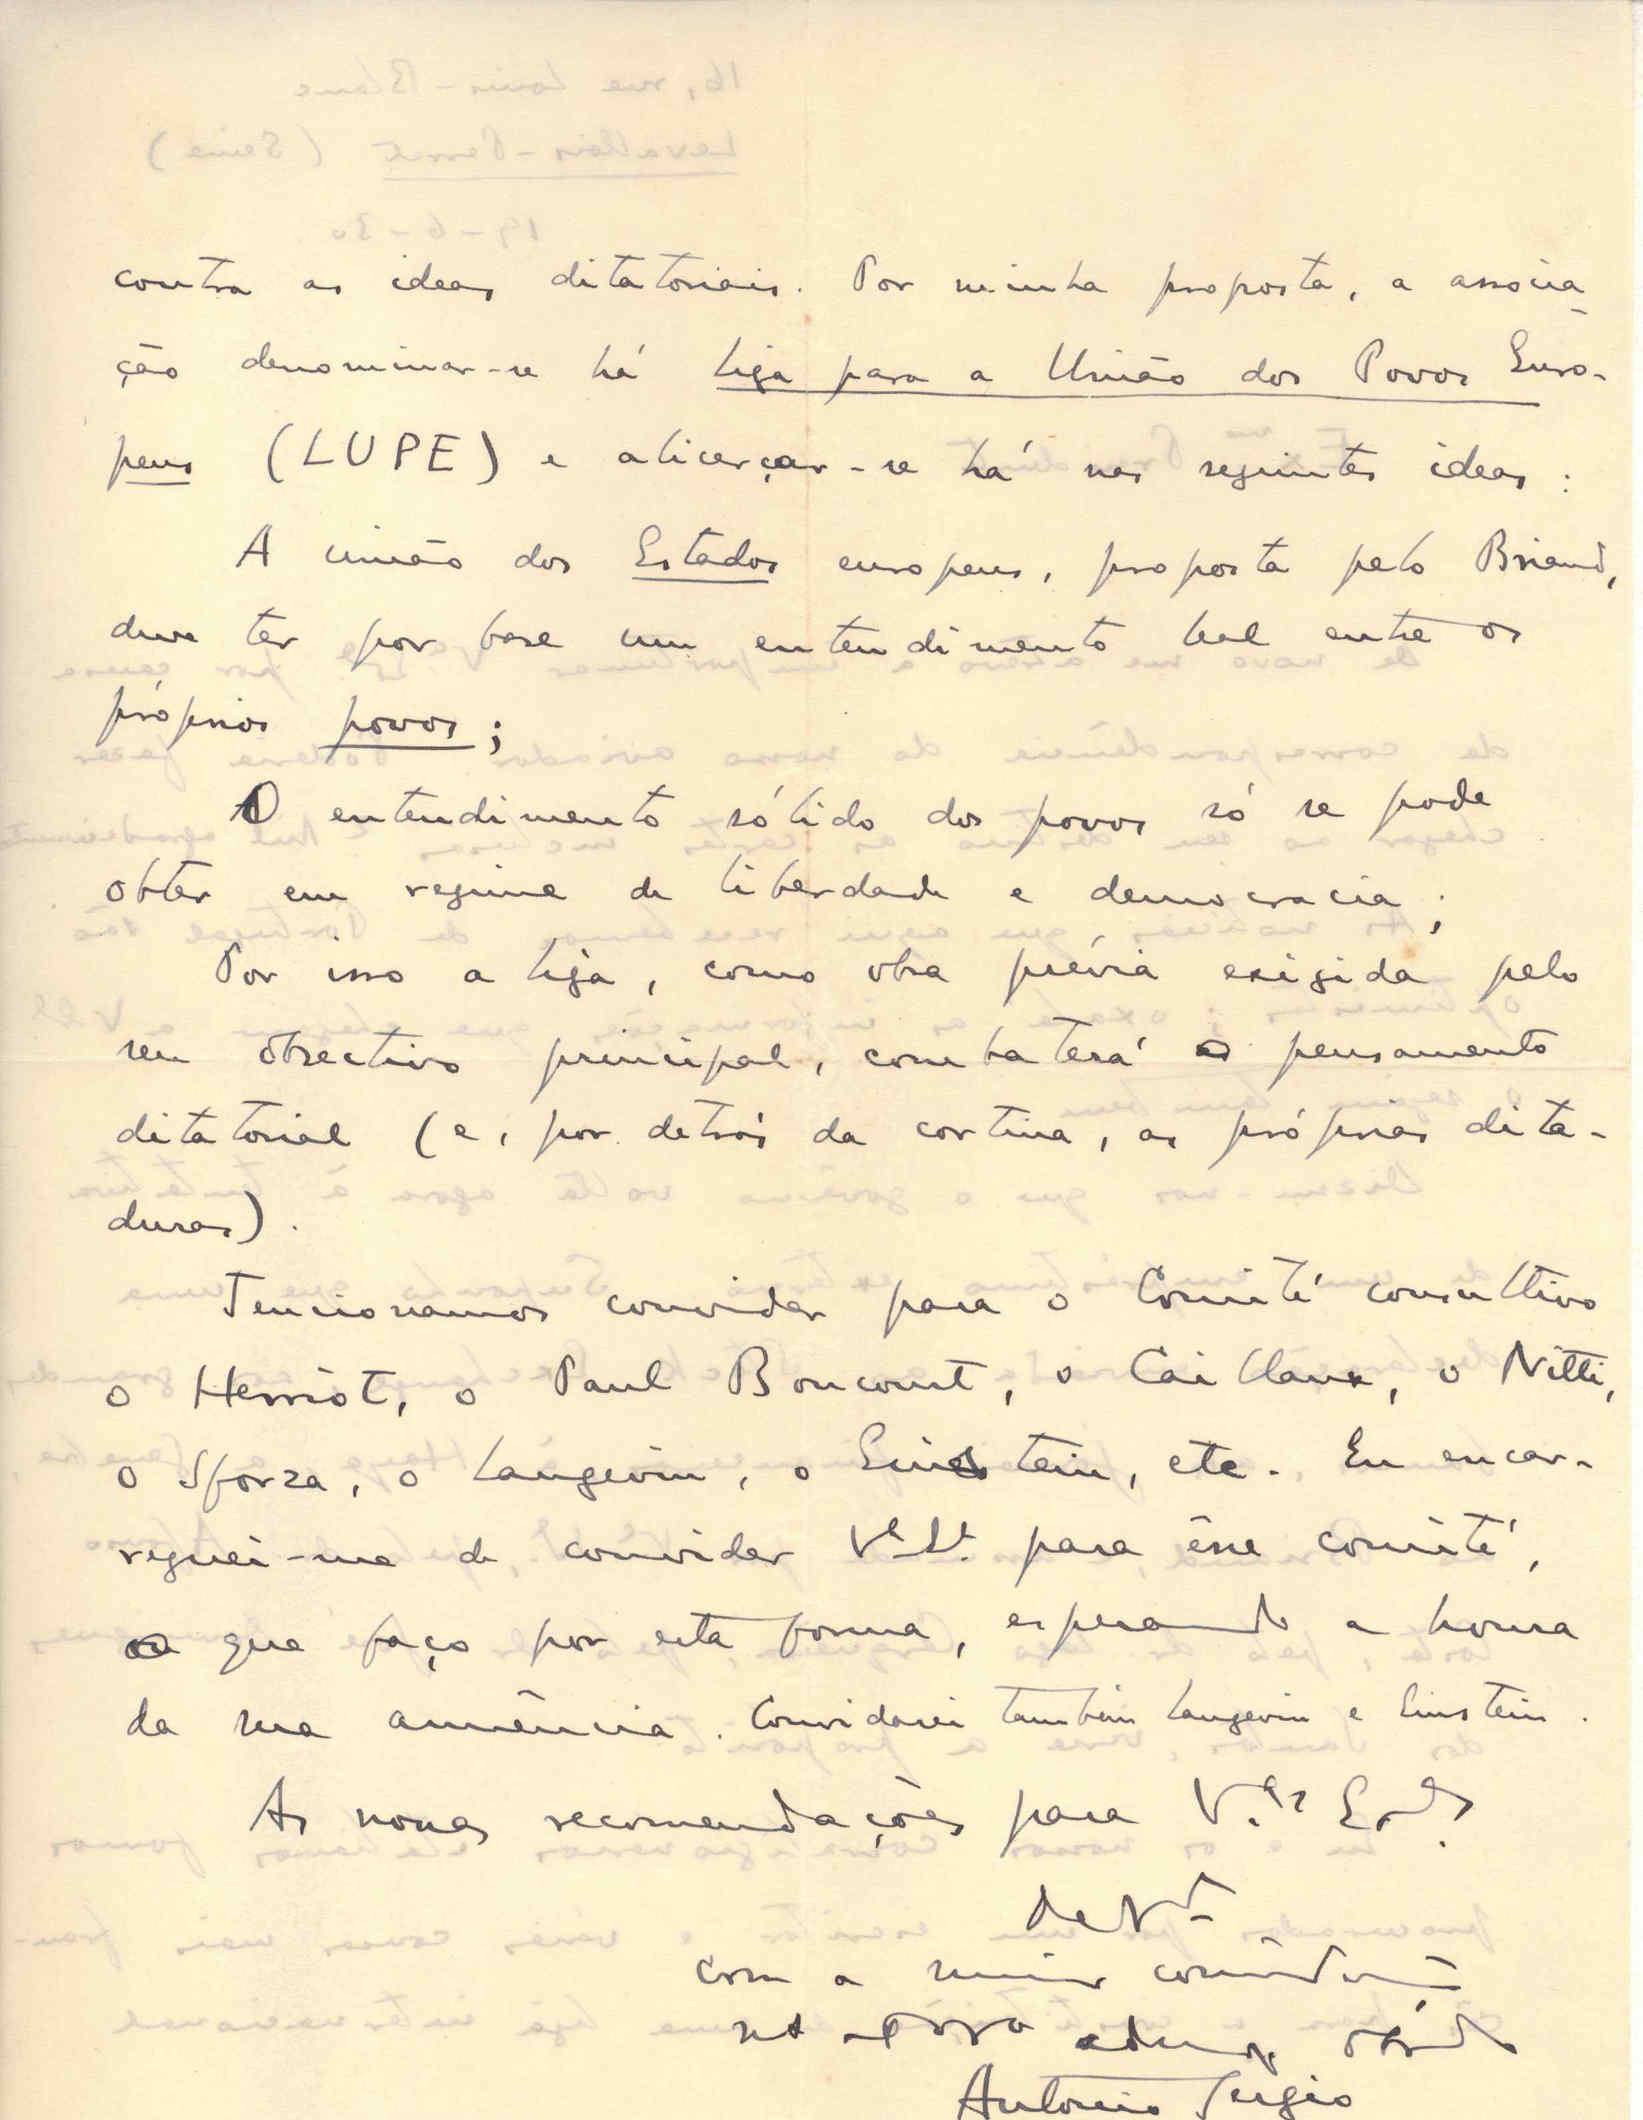 contra as ideas ditatoriais. Por minha proposta, a associa-
ção denominar-se há Liga para a União dos Povos Euro-
peus (LUPE) e alicerçar-se há nas seguintes ideas:
A união dos Estados europeus, proposta pelo Briand,
deve ter por base um entendimento leal entre os
próprios povos;
O entendimento sólido dos povos só se pode
obter em regime de liberdade e democracia;
Por isso a Liga, como obra prévia exigida pelo
seu objectivo principal, combaterá o pensamento
ditatorial (e, por detrás da cortina, as próprias dita-
duras).
Tencionamos convidar para o Comité consultivo
o Herriot, o Paul Boncourt, o Caillaux, o Nitti,
o Sforza, o Langevin, o Einstein, etc. Eu encar-
reguei-me de convidar V. Ex. para êsse comité,
o que faço por esta forma, esperando a honra
da sua anuência. Convidarei também Langevin e Einstein.
As nossas recomendações para V.as Ex.as
De V.
com a maior consideração
admor. obrdo
Antonio Sergio